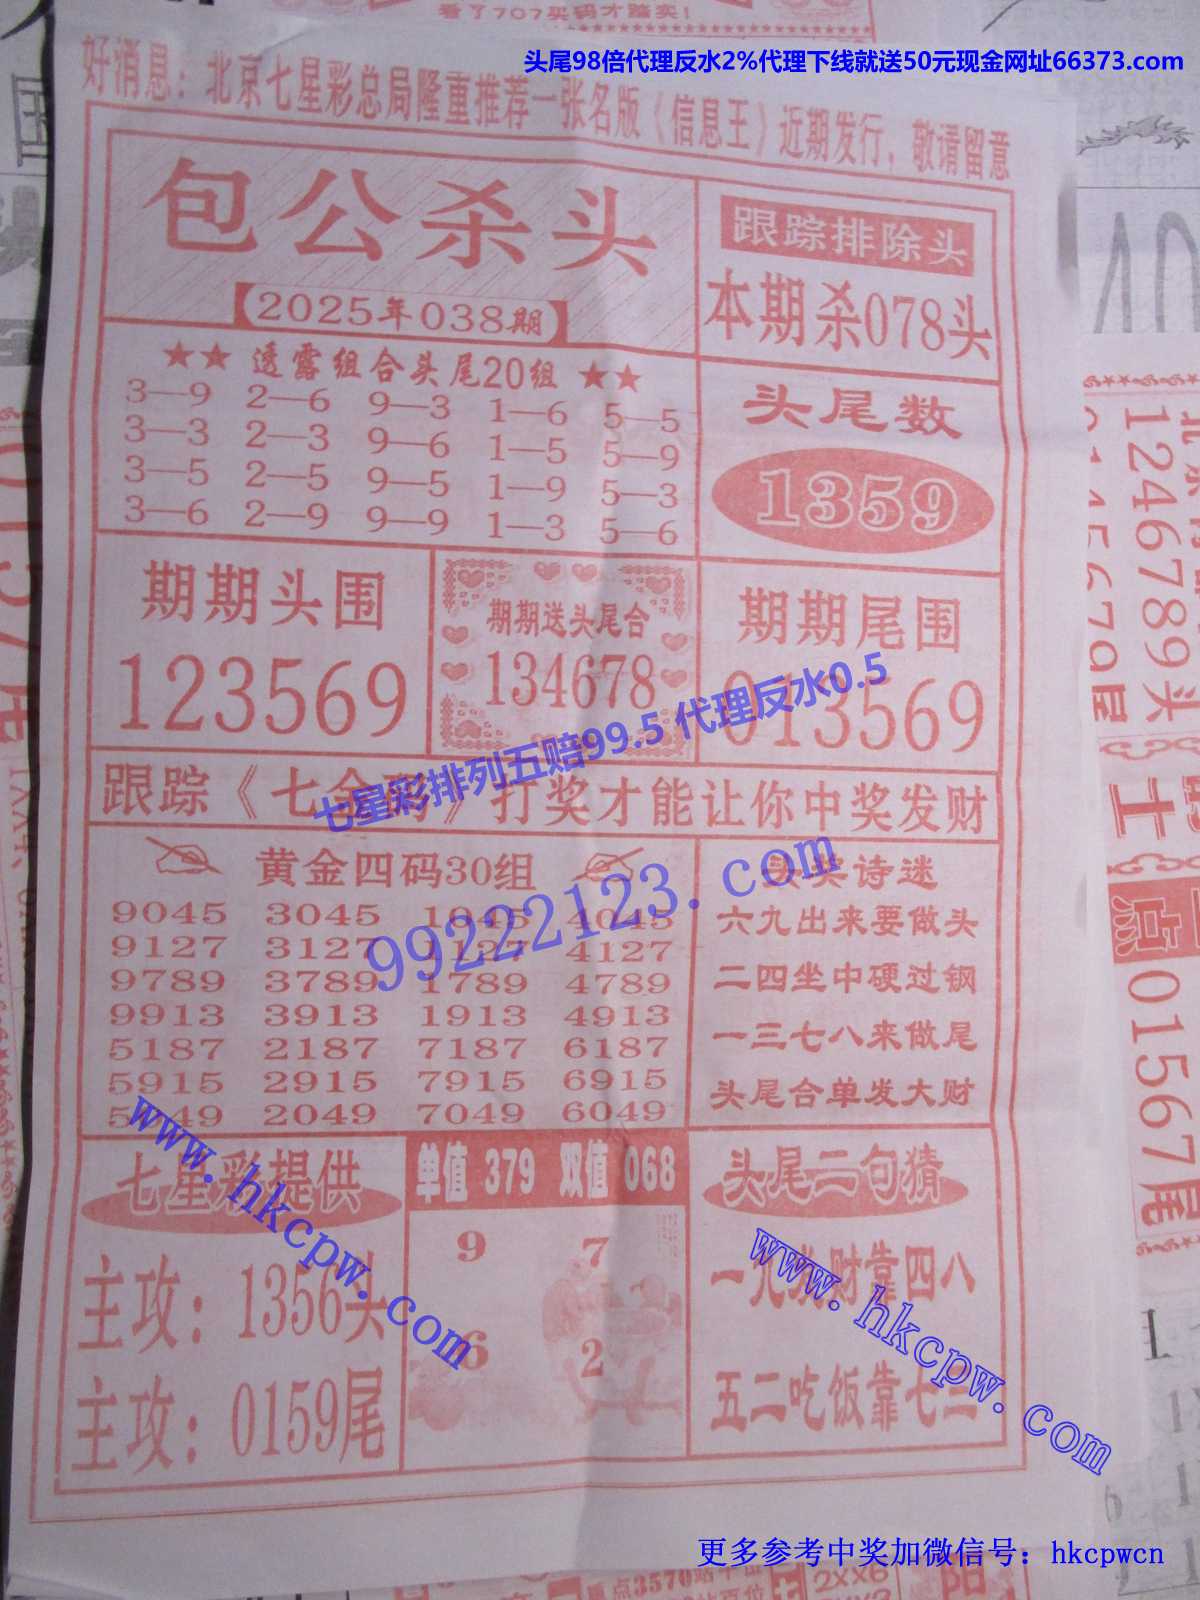 看了707买码才踏实!
头尾98倍代理反水2%代理下线就送50元现金网址66373.com
好消息：北京七星彩总局隆重推荐一张名版《信息王》近期发行，敬请留意
包公杀头
【2025年038期】
跟踪排除头
本期杀078头
★★ 透露组合头尾20组 ★★
3—9 2—6 9—3 1—6 5—5
3—3 2—3 9—6 1—5 5—9
3—5 2—5 9—5 1—9 5—3
3—6 2—9 9—9 1—3 5—6
头尾数
1359
期期头围
123569
期期送头尾合
134678
期期尾围
013569
七星彩排列五赔99.5 代理反水0.5
跟踪《七 》打奖才能让你中奖发财
99222123.com
黄金四码30组
9045 3045 1045 4045
9127 3127 1127 4127
9789 3789 1789 4789
9913 3913 1913 4913
5187 2187 7187 6187
5915 2915 7915 6915
5049 2049 7049 6049
头奖诗迷
六九出来要做头
二四坐中硬过钢
一三七八来做尾
头尾合单发大财
七星彩提供
主攻：1356头
主攻：0159尾
www.hkcpw.com
单值 379 双值 068
9 7
6 2
头尾二句猜
一九发财靠四八
五二吃饭靠七三
www.hkcpw.com
124678 9头
点
01567尾
更多参考中奖加微信号：hkcpwcn
2XX6